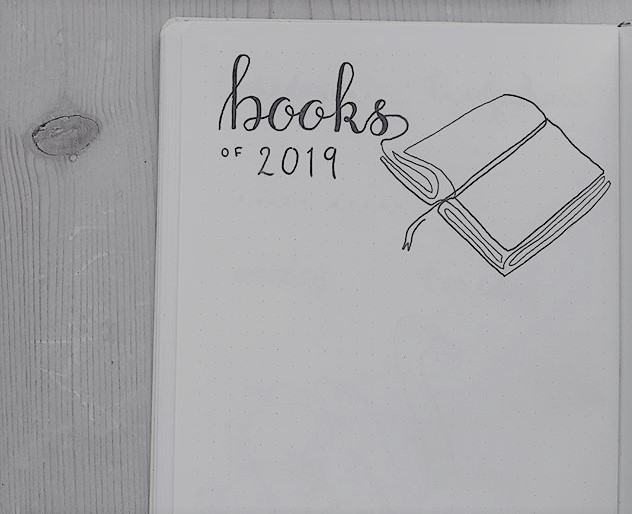 books
OF 2019